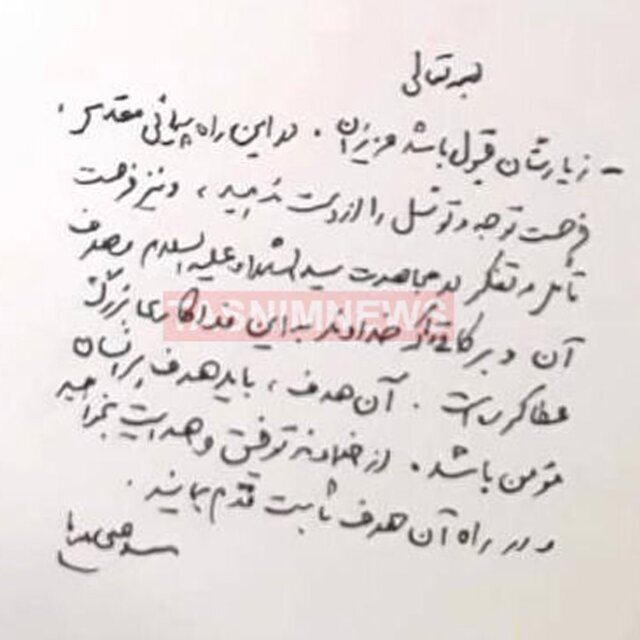 بسمه تعالی
- زیارتتان قبول باشد عزیزان . در این راه پیمائی مقدس،
فرصت توجه و توسّل را از دست ندهید ، و نیز فرصت
تأمل و تفکر در مجاهدت سیدالشهداء علیه‌السلام و هدف
TASNIMNEWS
آن و برکاتی که خداوند به این فداکاری بزرگ
عطا کرده است . آن هدف ، باید هدف هر انسان
مؤمن باشد . از خداوند توفیق و هدایت بخواهید
و در راه آن هدف ثابت قدم بمانید .